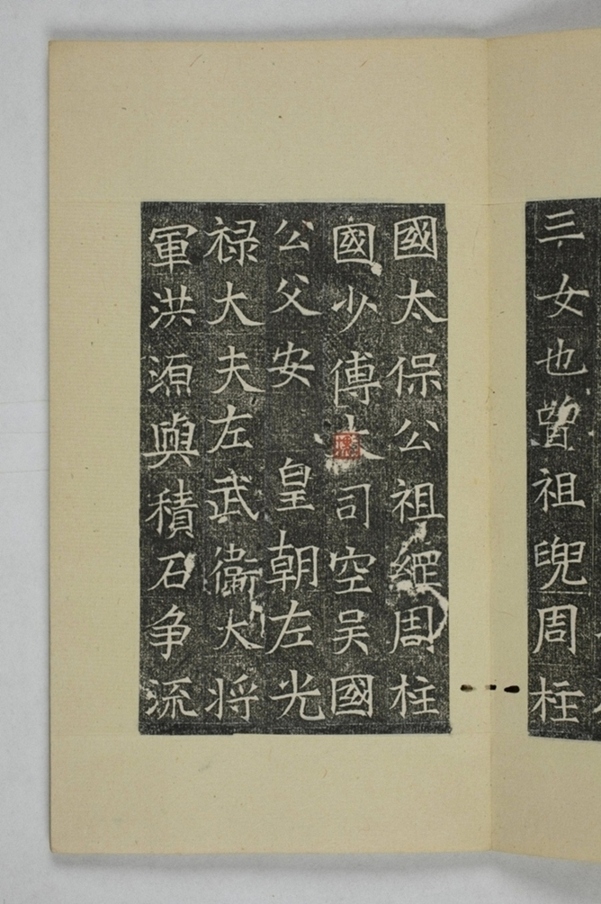 三女也曾祖兜周柱
國太保公祖綱周柱
國少傅大司空吴國
公父安 皇朝左光
禄大夫左武衛大将
軍洪源與積石争流